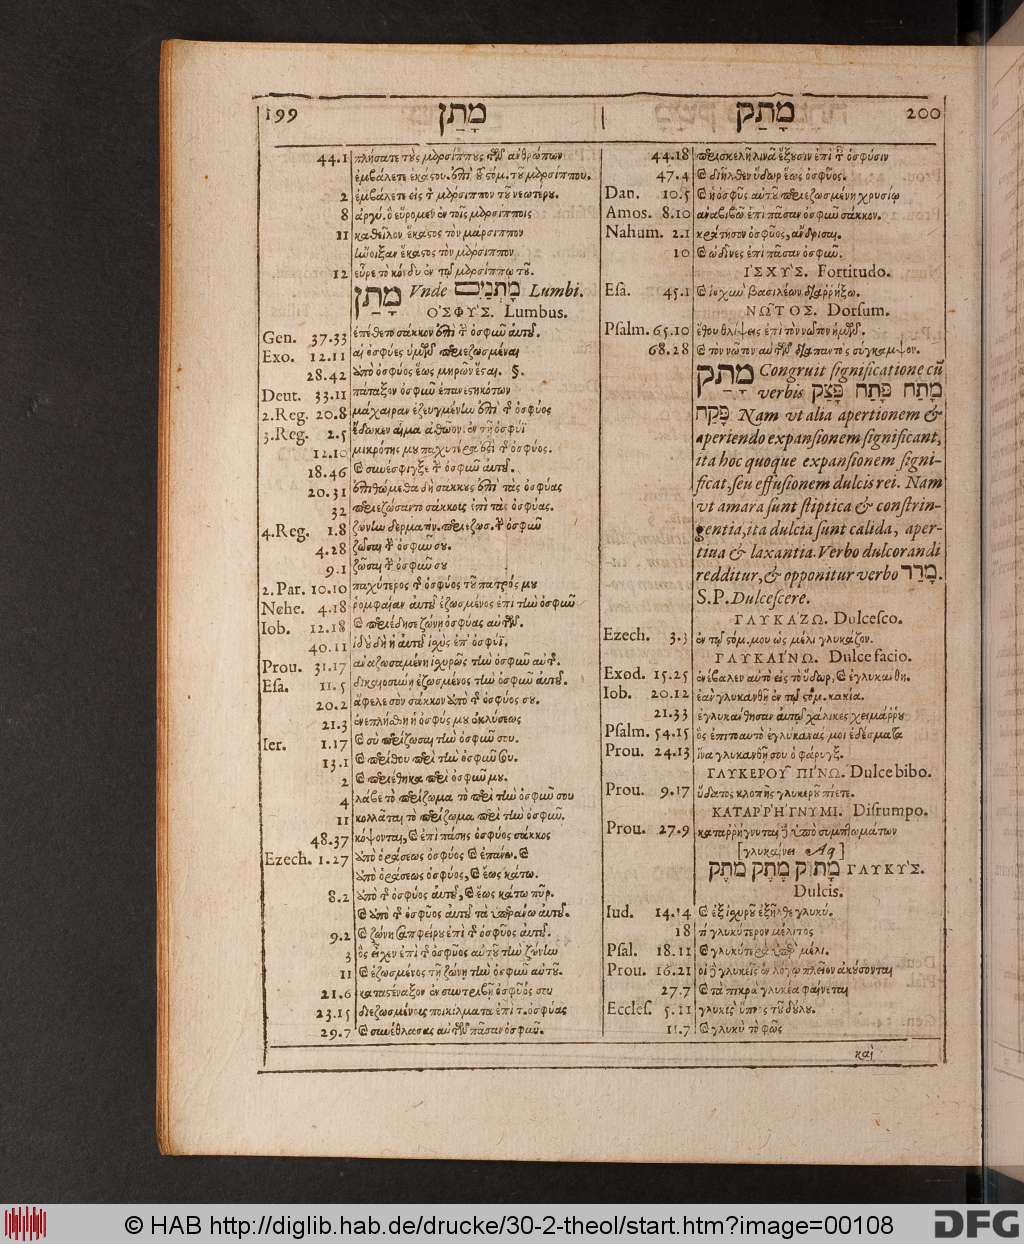 199 מָתַן
44.1 πλήσατε τὺς μαρσίππυς τῶν ἀνθρώπων
ἐμβάλετε ἑκάςου. ἐπὶ τῦ ςόμ. τῦ μαρσίππου.
2 ἐμβάλετε εἰς τ μάρσιππον τῦ νεωτέρυ.
8 ἀργύ. ὃ εὕρομεν ἐν τοῖς μαρσίπποις
11 καθεῖλον ἕκαςος τὸν μάρσιππον
ἤνοιξαν ἕκαςος τὸν μάρσιππον
12 εὗρε τὸ κόνδυ ἐν τῷ μαρσίππῳ τῦ.
מָתַן Vnde מָתְנַיִם Lumbi.
ΟΣΦΥΣ. Lumbus.
Gen. 37.33 ἐπέθετο σάκκον ἐπὶ τ ὀσφιῶ αὑτῦ.
Exo. 12.11 αἱ ὀσφύες ὑμῶν περιεζωσμέναι
28.42 ἀπὸ ὀσφύος ἕως μηρῶν ἔςαι. §.
Deut. 33.11 πάταξον ὀσφιῶ ἐπανεςηκότων
2.Reg. 20.8 μάχαιραν ἐζευγμένίω ἐπὶ τ ὀσφύος
3.Reg. 2.5 ἔδωκεν αἷμα ἀθῶον ἐν τῇ ὀσφύϊ
12.10 μικρότης μυ παχυτέρα ὑπὲρ τ ὀσφύος.
18.46 συνέσφιγξε τ ὀσφιῶ αὑτῦ.
20.31 ἐπιθώμεθα δὴ σάκκυς ἐπὶ τὰς ὀσφύας
32 περιεζώσαντο σάκκοις ἐπὶ τὰς ὀσφύας.
4.Reg. 1.8 ζώνίω δερματίν. περιεζωσ. τ ὀσφιῶ
4.28 ζῶσαι τ ὀσφιῶ συ.
9.1 ζῶσαι τ ὀσφιῶ συ
2.Par. 10.10 παχύτερος τ ὀσφύος τῦ πατρός μυ
Nehe. 4.18 ῥομφαίαν αὑτῦ ἐζωσμένος ἐπὶ τίω ὀσφιῶ
Iob. 12.18 περιέδησε ζώνη ὀσφύας αὐτῶν.
40.11 ἰδὺ δὴ ἡ αὑτῦ ἰχὺς ἐπ' ὀσφύϊ.
Prou. 31.17 ἀναζωσαμένη ἰχυρῶς τίω ὀσφιῶ αὑτ.
Esa. 11.5 δικαιοσύνη ἐζωσμένος τίω ὀσφιῶ αὑτῦ.
20.2 ἄφελε σὸν σάκκον ἀπὸ τ ὀσφύος συ.
21.3 ἐνεπλήθη ἡ ὀσφύς μυ ἐκλύσεως
Ier. 1.17 σὺ περίζωσαι τίω ὀσφιῶ συ.
13.1 περίθου περὶ τίω ὀσφιῶ συ.
2 περιέθηκα περὶ ὀσφιῶ μυ.
4 λάβε τὸ περίζωμα τὸ περὶ τίω ὀσφιῶ σου
11 κολλᾶται τὸ περίζωμα περὶ τίω ὀσφιῶ.
48.37 κόψονται, ἐπὶ πάσης ὀσφύος σάκκος
Ezech. 1.27 ἀπὸ ὁράσεως ὀσφύος ἐπάνω.
ἀπὸ ὁράσεως ὀσφύος, ἕως κάτω.
8.2 ἀπὸ τ ὀσφύος αὑτῦ, ἕως κάτω πῦρ.
ἀπὸ τ ὀσφύος αὑτῦ τὰ ὑπεράνω αὑτῦ.
9.2 ζώνη σαπφείρυ ἐπὶ τ ὀσφύος αὑτῦ.
3 ὃς εἶχεν ἐπὶ τ ὀσφύος αὑτῦ τίω ζώνίω
11 ἐζωσμένος τῇ ζώνῃ τίω ὀσφιῶ αὑτῦ.
21.6 καταςέναξον ἐν συντριβῇ ὀσφύός συ
23.15 διεζωσμένυς ποικίλματα ἐπὶ τ. ὀσφύας
29.7 συνέθλασας αὐτῶν πᾶσαν ὀσφιῶ.
מָתַק 200
44.18 περισκελῆ λινᾶ ἕξυσιν ἐπὶ τ ὀσφύσιν
47.4 διῆλθεν ὕδωρ ἕως ὀσφύος.
Dan. 10.5 ἡ ὀσφῦς αὑτῦ περιεζωσμένη χρυσίῳ
Amos. 8.10 ἀναβιβῶ ἐπὶ πᾶσαν ὀσφιῶ σάκκον.
Nahum. 2.1 κράτησον ὀσφύος, ἄνδρισαι.
10 ὠδῖνες ἐπὶ πᾶσαν ὀσφιῶ.
ΙΣΧΥΣ. Fortitudo.
Esa. 45.1 ἰσχιῶ βασιλέων διαρρήξω.
ΝΩΤΟΣ. Dorsum.
Psalm. 65.10 ἔθου θλίψεις ἐπὶ τὸν νῶτον ἡμῶν.
68.28 τὸν νῶτον αὐτῶν διαπαντὸς σύγκαμψον.
מָתַק Congruit significatione cū
verbis מָתַח פָּתַח פָּצַק
פָּקַח Nam vt alia apertionem &
aperiendo expansionem significant,
ita hoc quoque expansionem signi-
ficat, seu effusionem dulcis rei. Nam
vt amara sunt stiptica & constrin-
gentia, ita dulcia sunt calida, aper-
tiua & laxantia. Verbo dulcorandi
redditur, & opponitur verbo מָרַר.
S.P. Dulcescere.
ΓΛΥΚΑΖΩ. Dulcesco.
Ezech. 3.3 ἐν τῷ ςόμ. μου ὡς μέλι γλυκάζον.
ΓΛΥΚΑΙΝΩ. Dulce facio.
Exod. 15.25 ἐνέβαλεν αὐτὸ εἰς τὸ ὕδωρ, ἐγλυκάνθη.
Iob. 20.12 ἐὰν γλυκανθῇ ἐν τῷ ςόμ. κακία.
21.33 ἐγλυκάνθησαν αὐτῷ χάλικες χειμάρρυ
Psalm. 54.15 ὃς ἐπιτοαυτὸ ἐγλύκανας μοι ἐδέσματα
Prou. 24.13 ἵνα γλυκανθῇ σου ὁ φάρυγξ.
ΓΛΥΚΕΡΟΥ ΠΙΝΩ. Dulce bibo.
Prou. 9.17 ὕδατος κλοπῆς γλυκερῦ πίετε.
ΚΑΤΑΡΡΗΓΝΥΜΙ. Disrumpo.
Prou. 27.9 καταῤῥήγνυται ὑπὸ συμπτωμάτων
[γλυκαίνει Aq]
מָתוֹק מָתֵק מֹתֶק ΓΛΥΚΥΣ.
Dulcis.
Iud. 14.14 ἐξ ἰχυρῦ ἐξῆλθε γλυκύ.
18 τί γλυκύτερον μέλιτος
Psal. 18.11 γλυκύτερα ὑπὲρ μέλι.
Prou. 16.21 οἱ γλυκεῖς ἐν λόγῳ πλεῖον ἀκύσονται
27.7 τὰ πικρὰ γλυκέα φαίνεται
Eccles. 5.11 γλυκὺς ὕπνος τῦ δύλυ.
11.7 γλυκὺ τὸ φῶς
καὶ
© HAB http://diglib.hab.de/drucke/30-2-theol/start.htm?image=00108
DFG